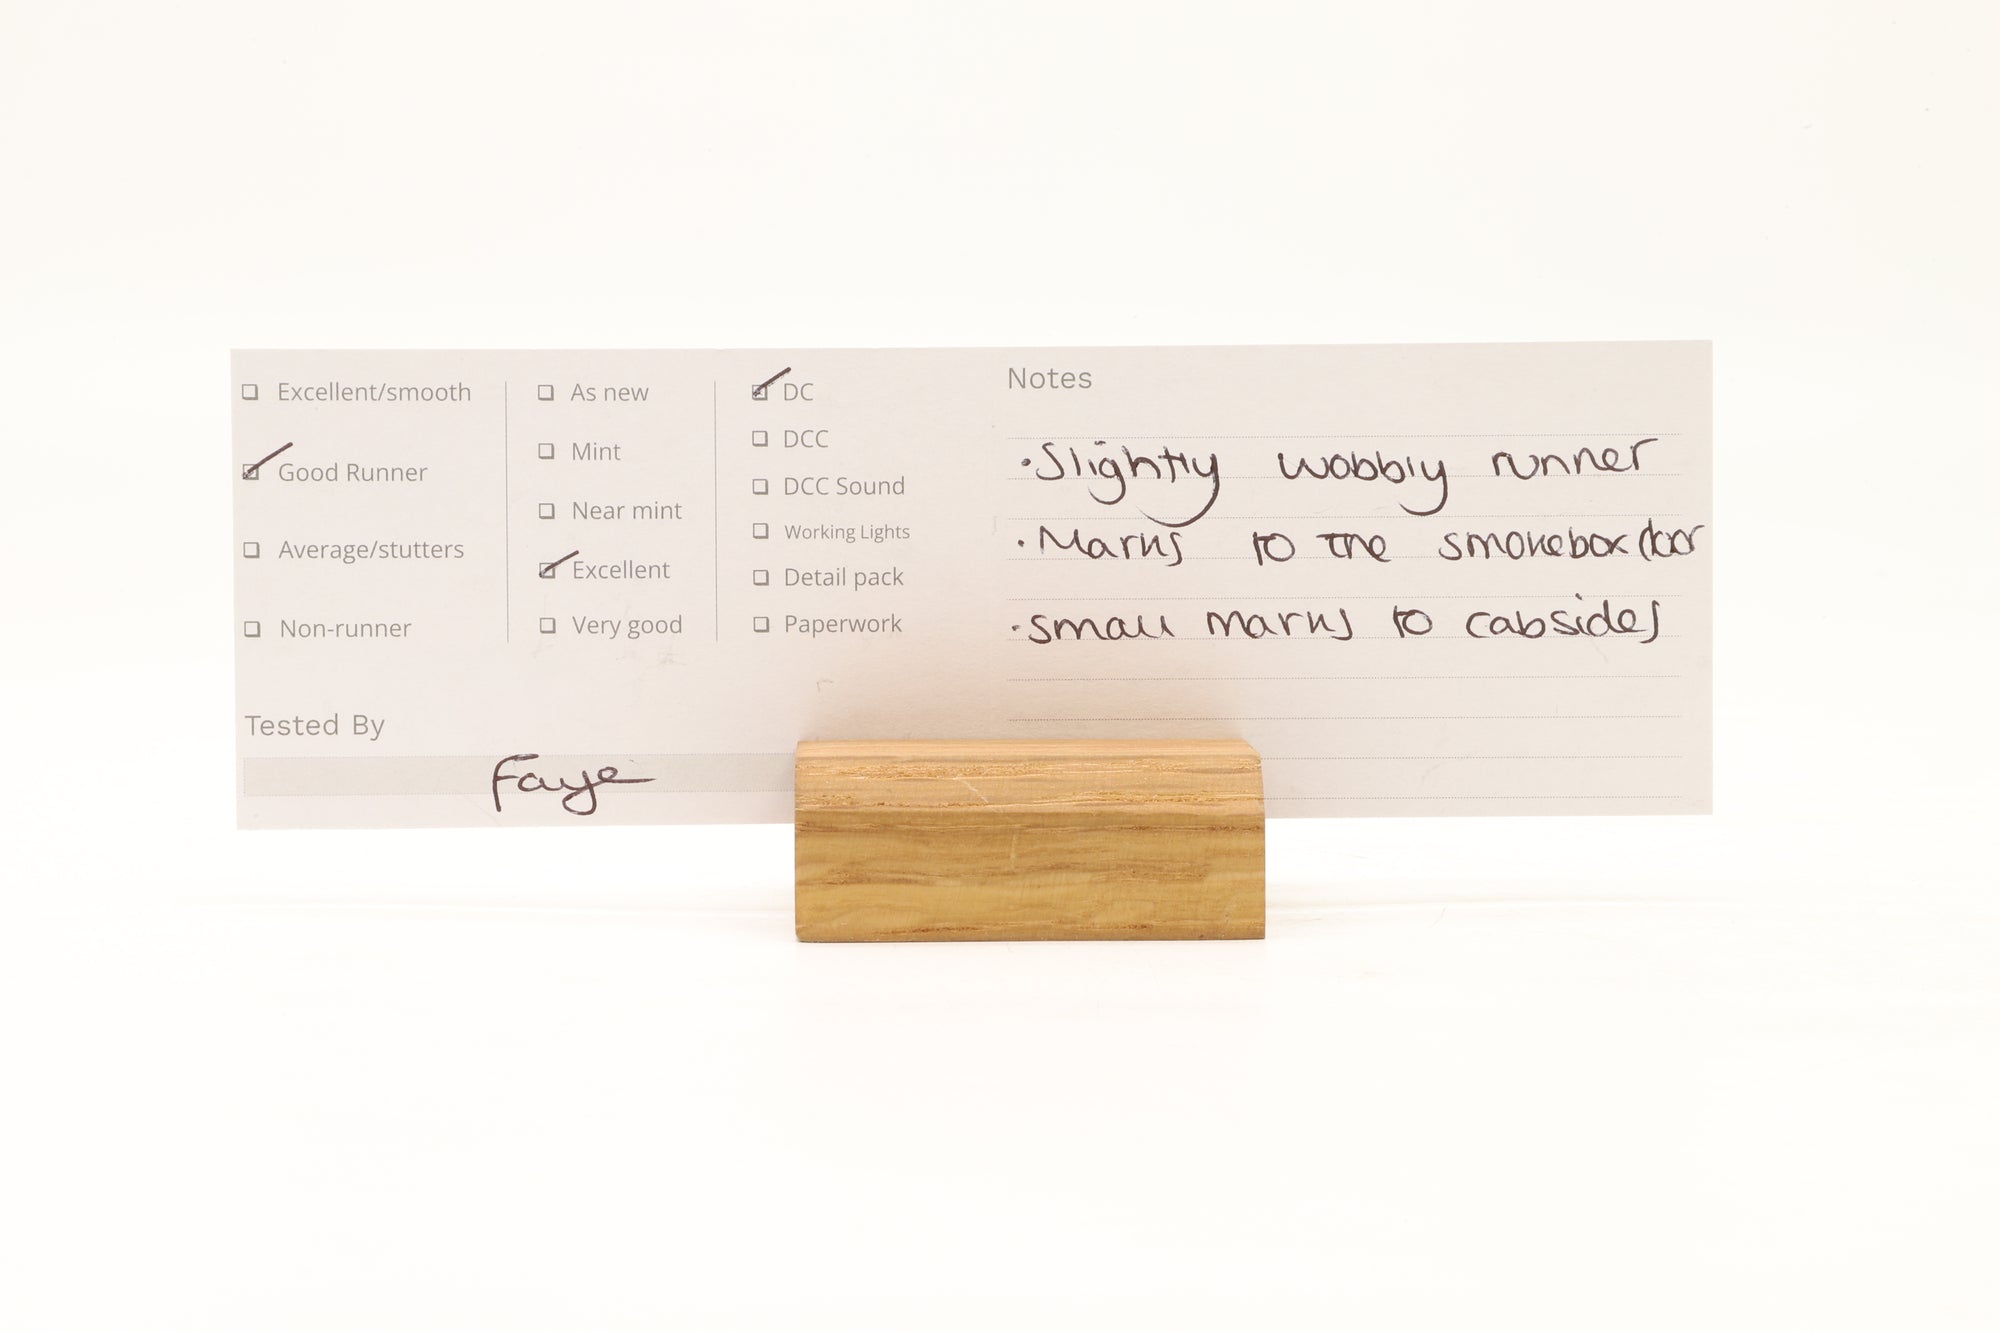 Excellent/smooth
Good Runner
Average/stutters
Non-runner
As new
Mint
Near mint
Excellent
Very good
DC
DCC
DCC Sound
Working Lights
Detail pack
Paperwork
Tested By
Faye
Notes
·Slightly wobbly runner
·Marks to the smokebox door
·small marks to cabsides